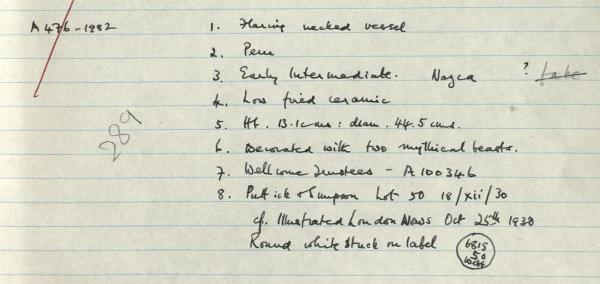 A 476-1982
1. Flaring necked vessel
2. Peru
3. Early Intermediate. Nazca ? fake
4. Low fired ceramic
5. Ht. 13.1cms : diam. 44.5 cms.
6. Decorated with two mythical beasts.
7. Wellcome Trustees - A100346
8. Puttick & Simpson Lot 50 18/xii/30
cf. Illustrated London News Oct 25th 1930
Round white stuck on label
6815
50
289